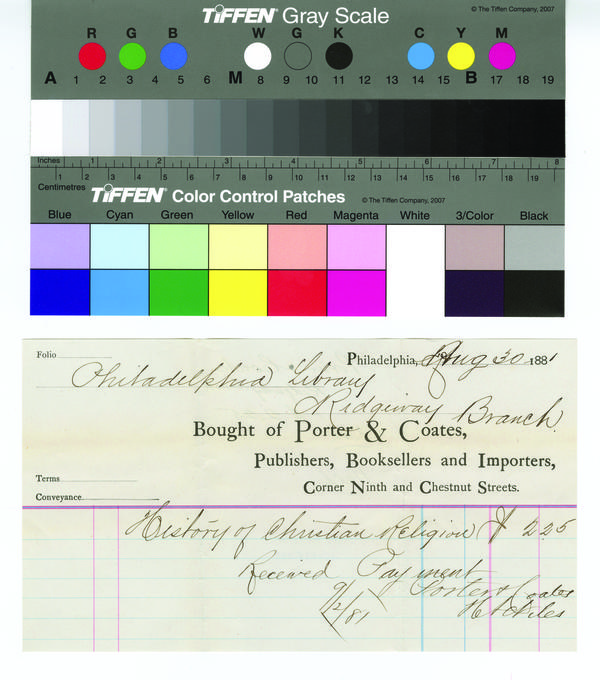 TIFFEN® Gray Scale
© The Tiffen Company, 2007
R G B W G K C Y M
A 1 2 3 4 5 6 M 8 9 10 11 12 13 14 15 B 17 18 19
Inches 1 2 3 4 5 6 7 8
1 2 3 4 5 6 7 8 9 10 11 12 13 14 15 16 17 18 19
Centimetres
TIFFEN® Color Control Patches
© The Tiffen Company, 2007
Blue Cyan Green Yellow Red Magenta White 3/Color Black
Folio
Philadelphia, Aug 30 1881
Philadelphia Library
Ridgeway Branch.
Bought of Porter & Coates,
Publishers, Booksellers and Importers,
Corner Ninth and Chestnut Streets.
Terms
Conveyance
History of Christian Religion $ 2 25
Received Payment
Porter & Coates
9/2/81